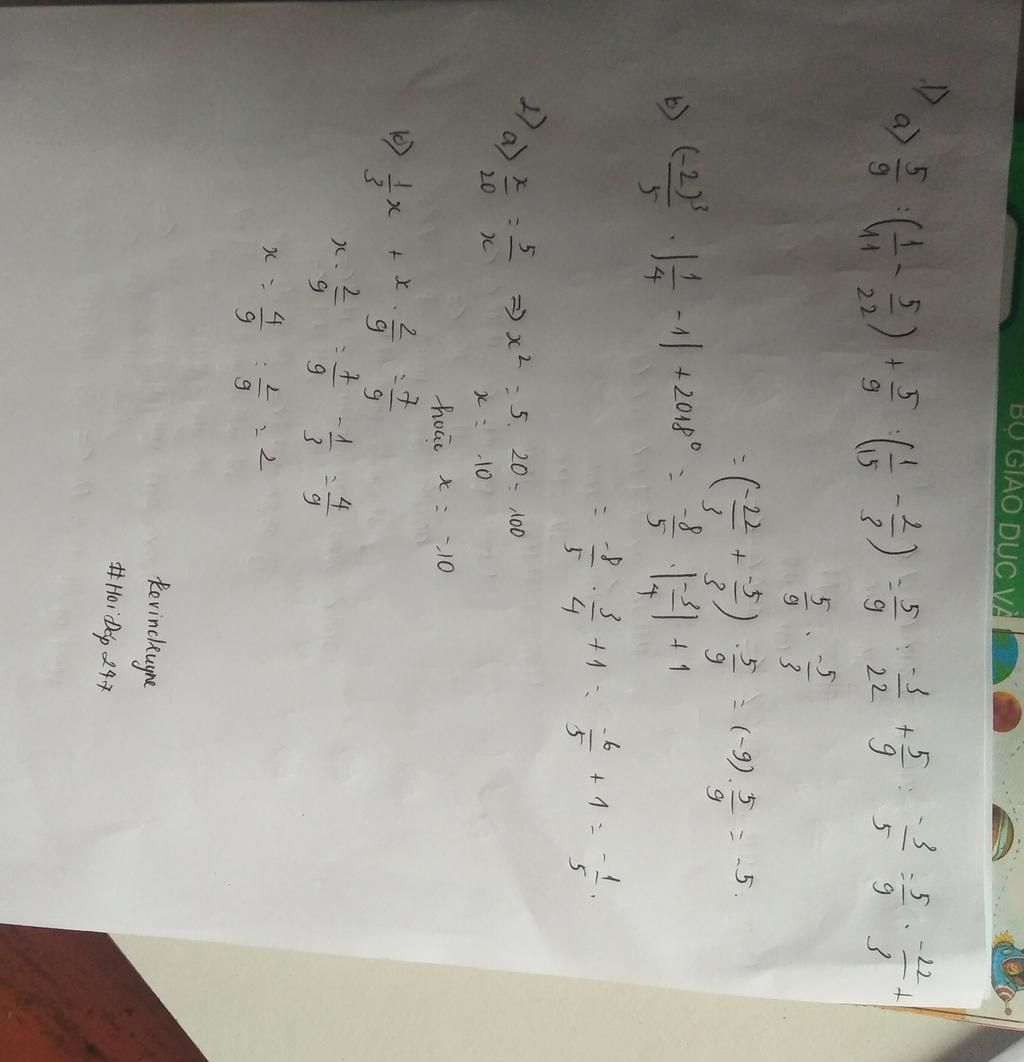 1) a) 5/9 : (1/11 - 5/22) + 5/9 : (1/15 - 2/3) = 5/9 : -3/22 + 5/9 : -3/5 = 5/9 . -22/3 +
5/9 . -5/3
= (-22/3 + -5/3) . 5/9 = (-9) . 5/9 = -5.
b) (-2)³/5 . |1/4 - 1| + 2018⁰ = -8/5 . |-3/4| + 1
= -8/5 . 3/4 + 1 = -6/5 + 1 = -1/5.
2) a) x/20 = 5/x => x² = 5. 20 = 100
x = 10
hoặc x = -10
b) 1/3 x + x . 2/9 = 7/9
x . 2/9 = 7/9 - 1/3 = 4/9
x = 4/9 : 2/9 = 2
#Hoidap247
BỘ GIÁO DỤC VÀ